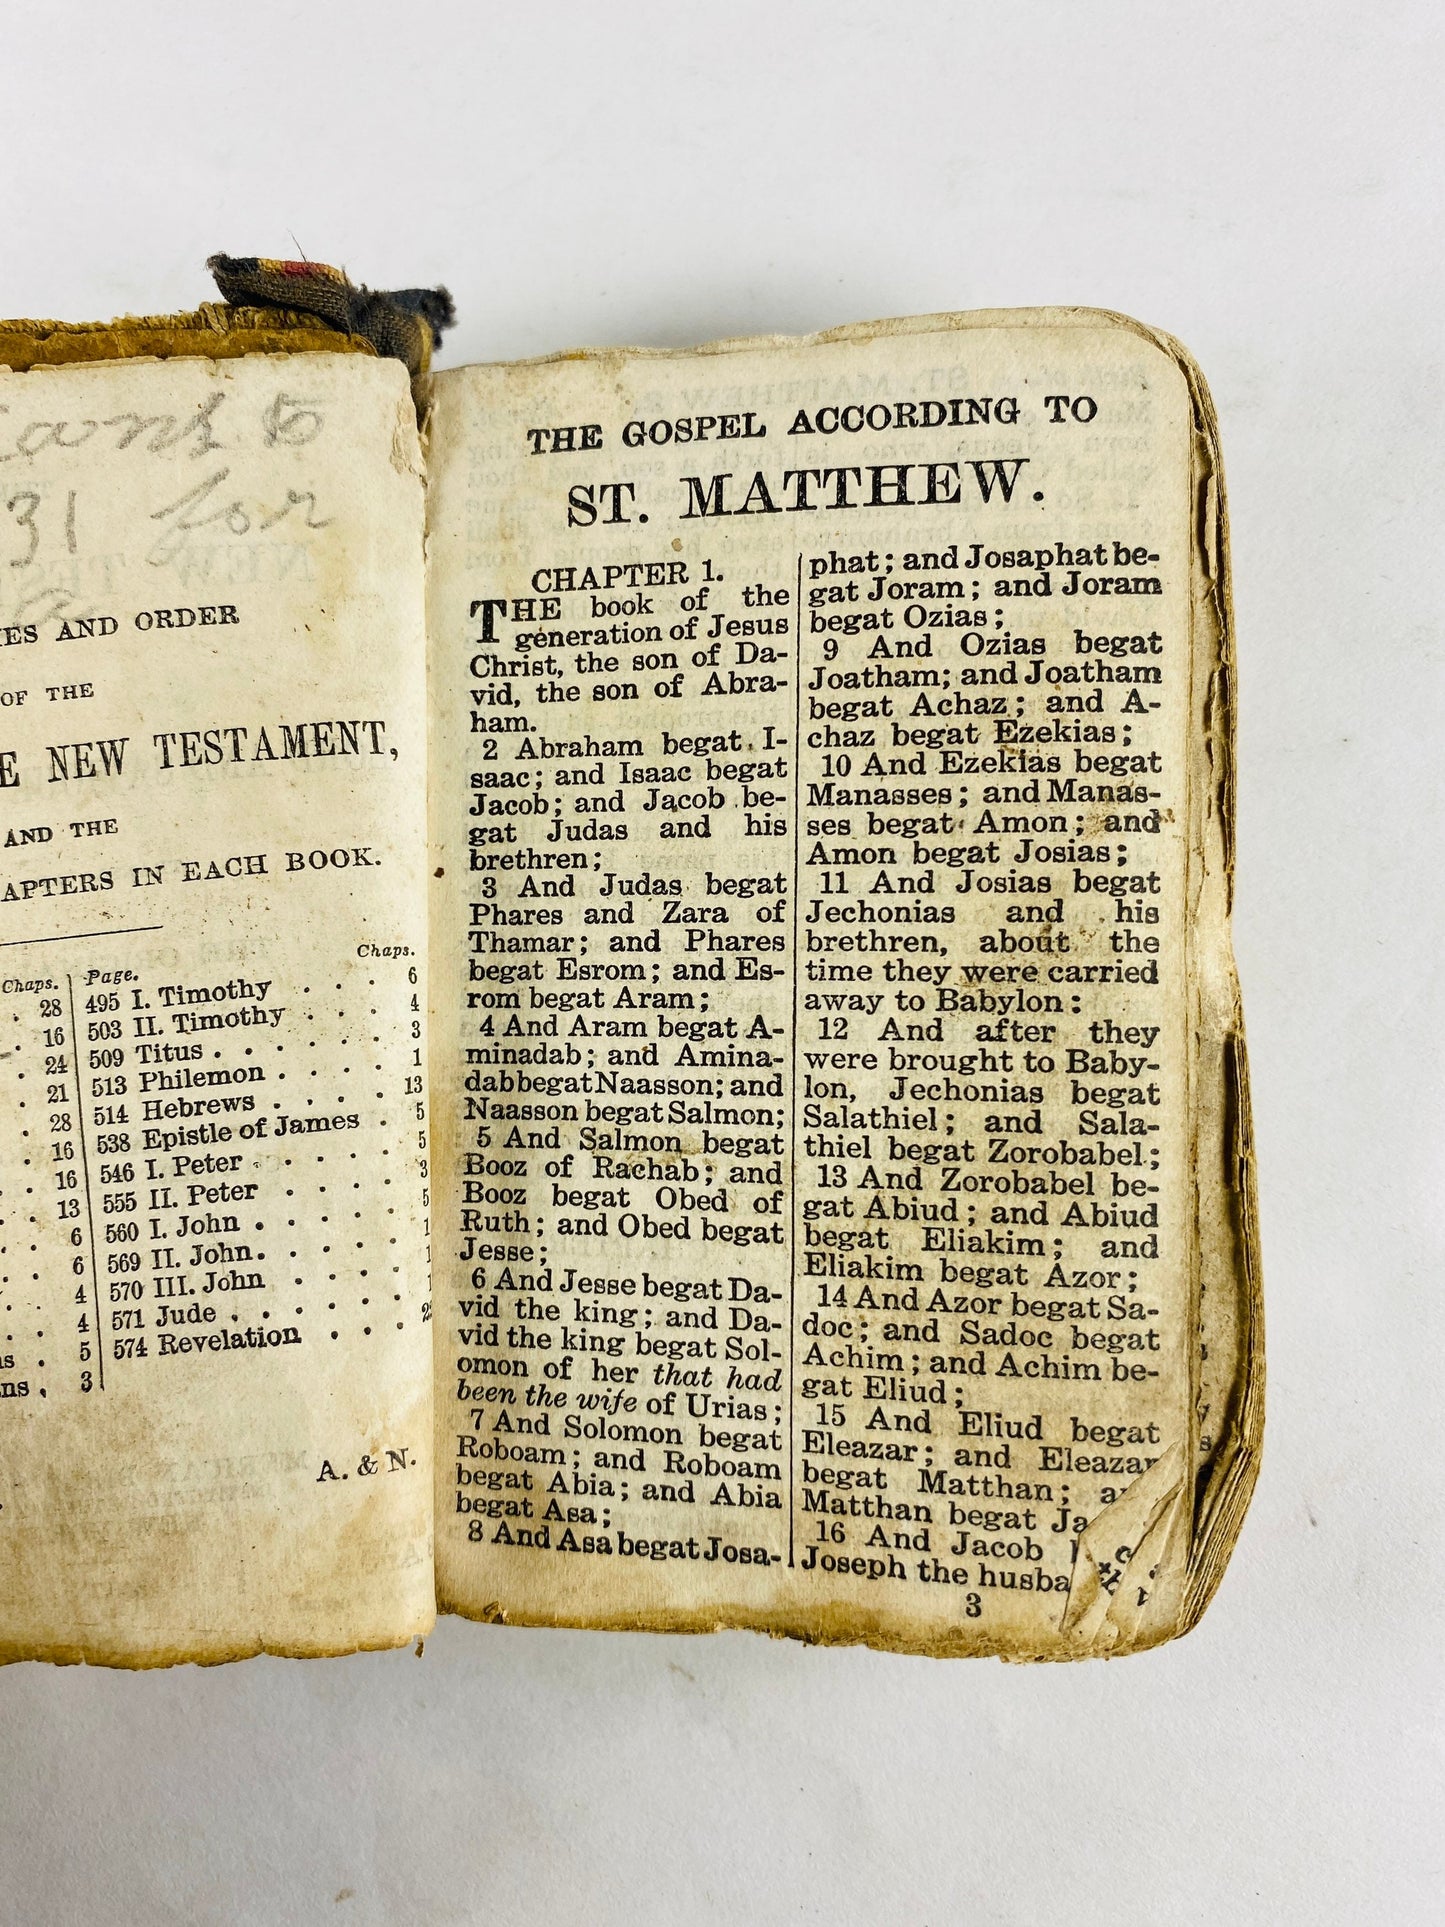 31 for
AND ORDER
OF THE
NEW TESTAMENT,
AND THE
IN EACH BOOK.
Chaps.
28
16
24
21
28
16
16
13
6
6
4
4
5
3
Page. Chaps.
495 I. Timothy . . . 6
503 II. Timothy . . . 4
509 Titus . . . . . . 3
513 Philemon . . . . 1
514 Hebrews . . . . 13
538 Epistle of James . 5
546 I. Peter . . . . . 5
555 II. Peter . . . . 3
560 I. John . . . . . 5
569 II. John . . . . . 1
570 III. John . . . . 1
571 Jude . . . . . . 1
574 Revelation . . .
A. & N.
THE GOSPEL ACCORDING TO
ST. MATTHEW.
CHAPTER 1.
THE book of the
generation of Jesus
Christ, the son of Da-
vid, the son of Abra-
ham.
2 Abraham begat I-
saac; and Isaac begat
Jacob; and Jacob be-
gat Judas and his
brethren;
3 And Judas begat
Phares and Zara of
Thamar; and Phares
begat Esrom; and Es-
rom begat Aram;
4 And Aram begat A-
minadab; and Amina-
dab begat Naasson; and
Naasson begat Salmon;
5 And Salmon begat
Booz of Rachab; and
Booz begat Obed of
Ruth; and Obed begat
Jesse;
6 And Jesse begat Da-
vid the king; and Da-
vid the king begat Sol-
omon of her that had
been the wife of Urias;
7 And Solomon begat
Roboam; and Roboam
begat Abia; and Abia
begat Asa;
8 And Asa begat Josa-
phat; and Josaphat be-
gat Joram; and Joram
begat Ozias;
9 And Ozias begat
Joatham; and Joatham
begat Achaz; and A-
chaz begat Ezekias;
10 And Ezekias begat
Manasses; and Manas-
ses begat Amon; and
Amon begat Josias;
11 And Josias begat
Jechonias and his
brethren, about the
time they were carried
away to Babylon:
12 And after they
were brought to Baby-
lon, Jechonias begat
Salathiel; and Sala-
thiel begat Zorobabel;
13 And Zorobabel be-
gat Abiud; and Abiud
begat Eliakim; and
Eliakim begat Azor;
14 And Azor begat Sa-
doc; and Sadoc begat
Achim; and Achim be-
gat Eliud;
15 And Eliud begat
Eleazar; and Eleazar
begat Matthan;
Matthan begat
16 And Jacob
Joseph the
3